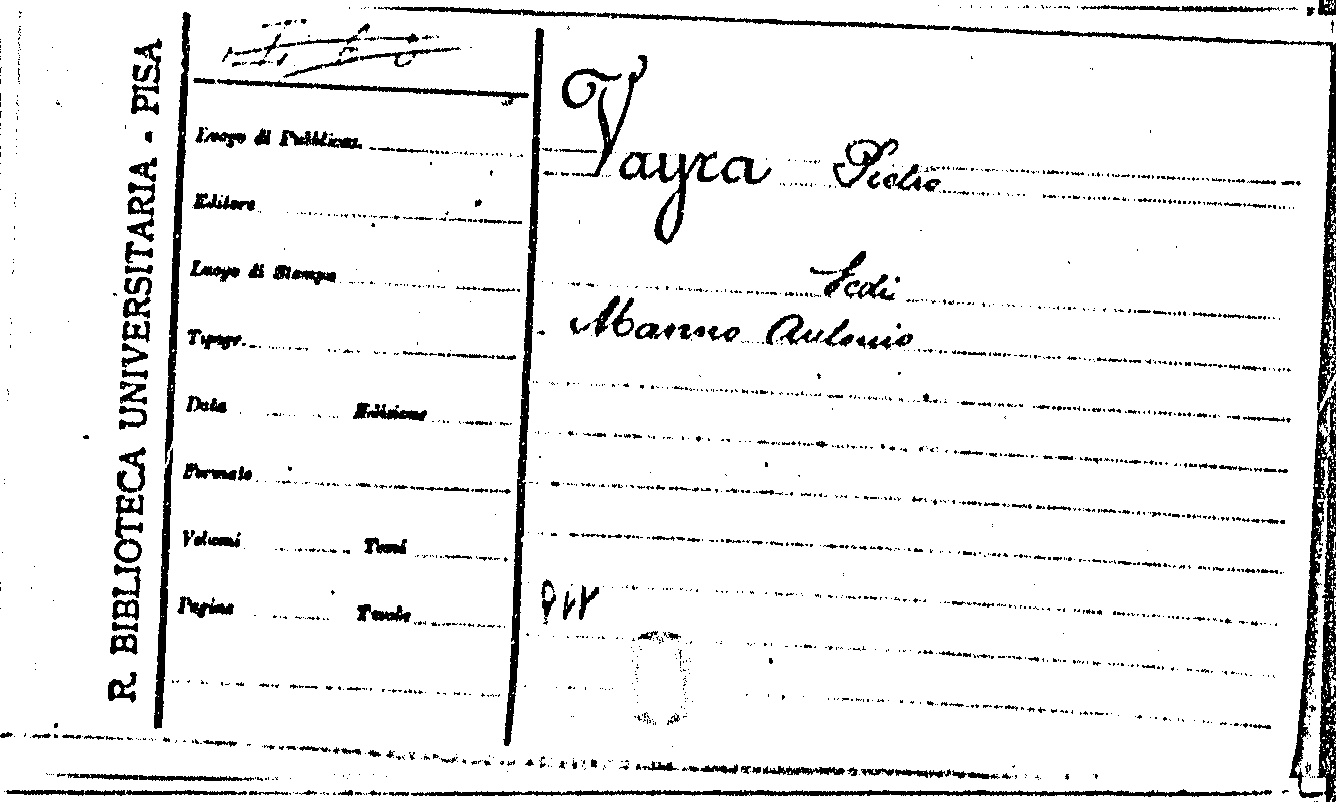 R. BIBLIOTECA UNIVERSITARIA - PISA
Luogo di Pubblicaz.
Editore
Luogo di Stampa
Tipogr.
Data Edizione
Formato
Volumi Tomi
Pagine Tavole
Vayra Pietro
Vedi
Manno Antonio